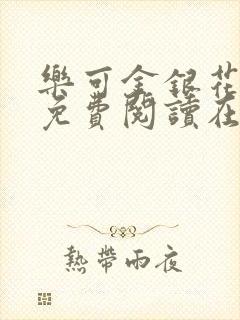 樂可金銀花
免費閱讀在
熱帶雨夜